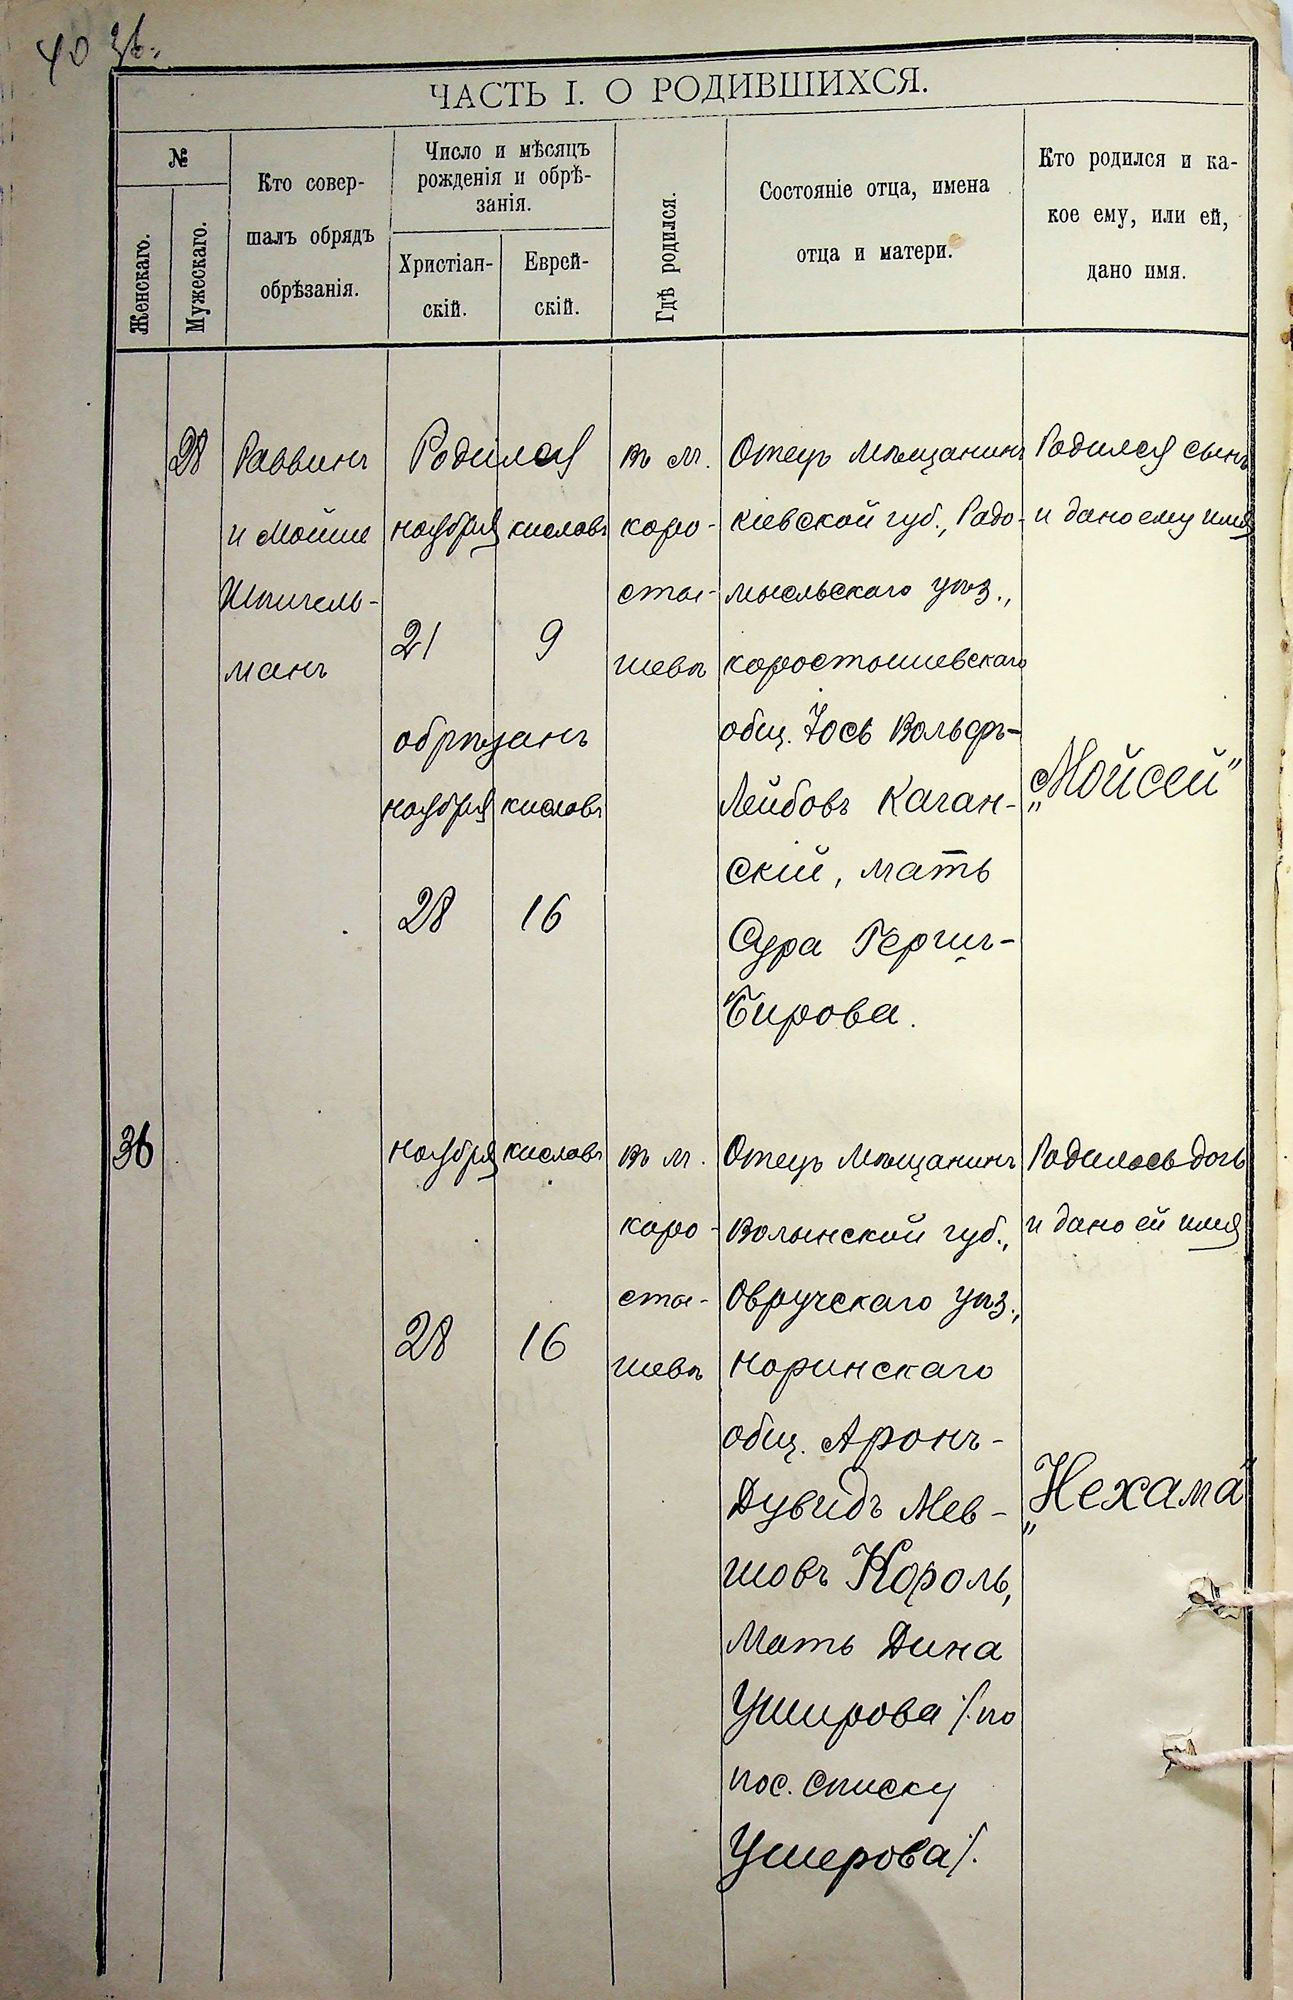 40 зв.
ЧАСТЬ I. О РОДИВШИХСЯ.
№
Женскаго.
Мужескаго.
Кто совер-
шалъ обрядъ
обрѣзанія.
Число и мѣсяцъ
рожденія и обрѣ-
занія.
Христіан-
скій.
Еврей-
скій.
Гдѣ родился.
Состояніе отца, имена
отца и матери.
Кто родился и ка-
кое ему, или ей,
дано имя.
28
Раввинъ
и Мойше
Шпигель-
манъ
Родился
ноября кислевъ
21 9
обрѣзанъ
ноября кислевъ
28 16
въ м.
Коро-
сты-
шевѣ
Отецъ мѣщанинъ
Кіевской губ., Радо-
мысльскаго уѣз.,
Коростышевскаго
общ. Іось Вольфъ-
Лейбовъ Каган-
скій, мать
Сура Герш-
Бирова.
Родился сынъ
и дано ему имя
„Мойсей"
36
ноября кислевъ
28 16
въ м.
Коро-
сты-
шевѣ
Отецъ мѣщанинъ
Волынской губ.,
Овручскаго уѣз.,
Норинскаго
общ. Аронъ-
Дувидъ Мев-
шовъ Король,
мать Дина
Уширова /по
пос. списку
Ушерова/.
Родилась дочь
и дано ей имя
„Нехама"